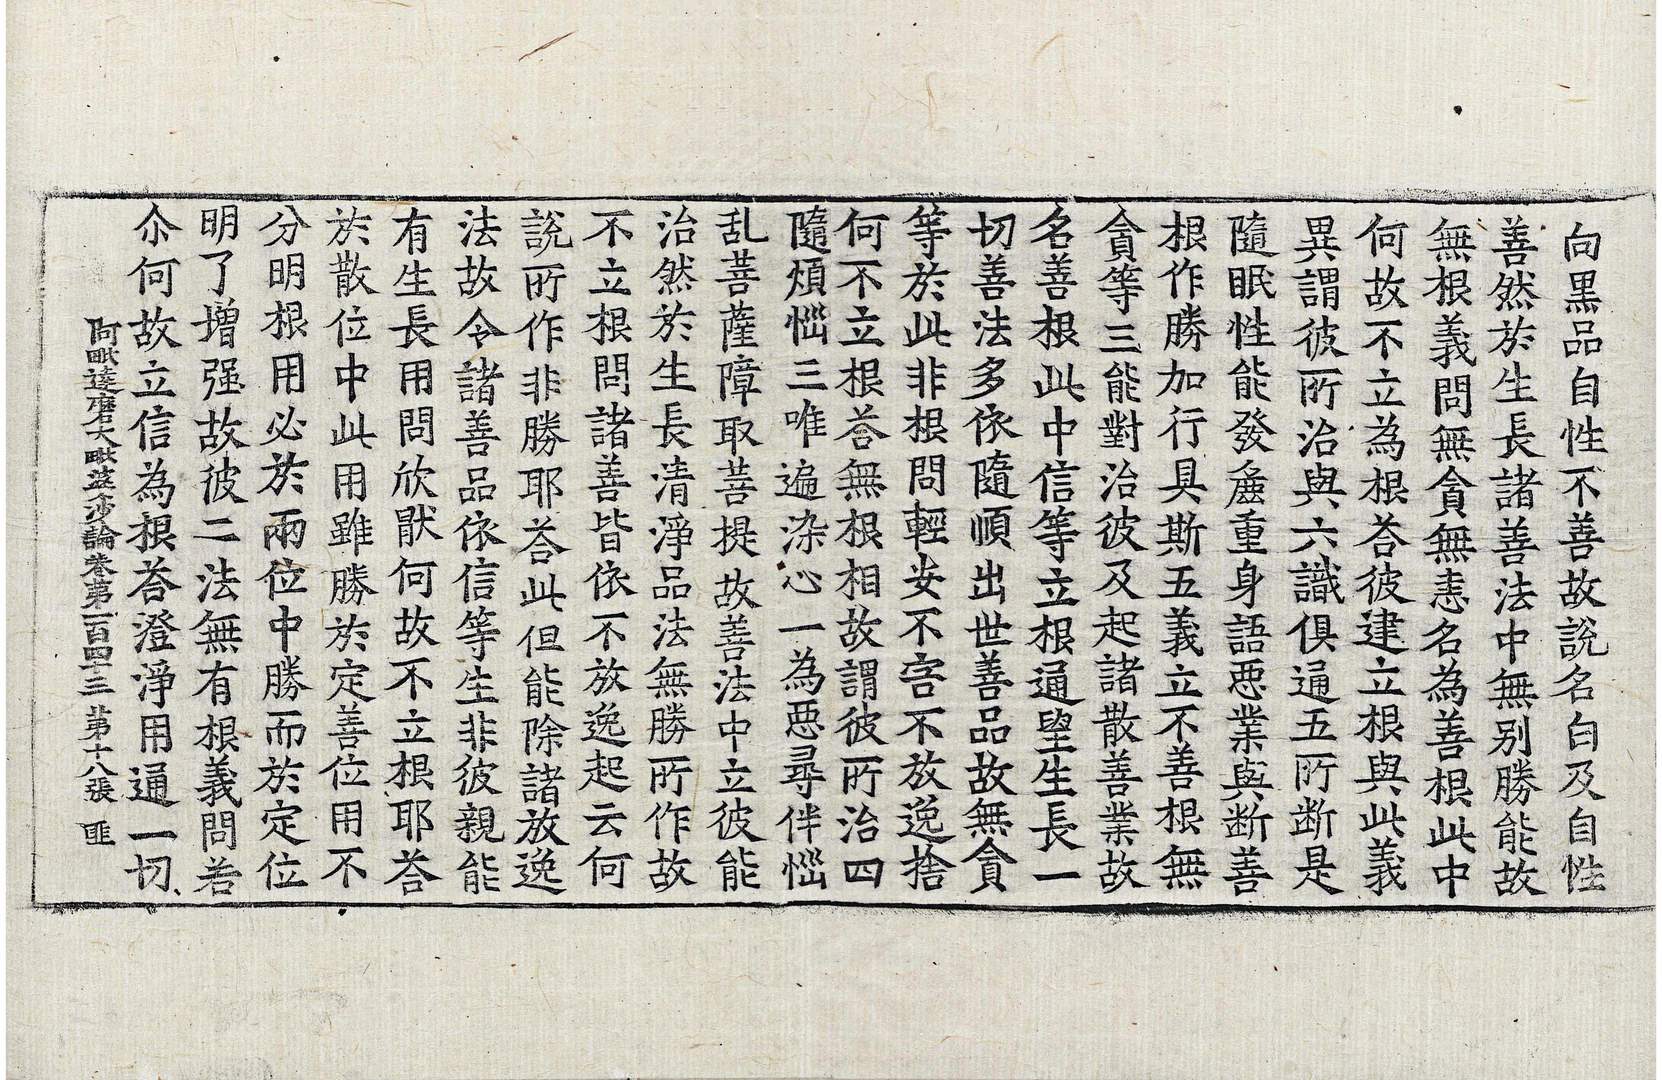 向黑品自性不善故說名白及自性
善然於生長諸善法中無別勝能故
無根義問無貪無恚名為善根此中
何故不立為根荅彼建立根與此義
異謂彼所治與六識俱通五所断是
隨眠性能發麁重身語惡業與断善
根作勝加行具斯五義立不善根無
貪等三能對治彼及起諸散善業故
名善根此中信等立根通望生長一
切善法多依隨順出世善品故無貪
等於此非根問輕安不害不放逸捨
何不立根荅無根相故謂彼所治四
隨煩惱三唯遍染心一為惡尋伴惱
乱菩薩障取菩提故善法中立彼能
治然於生長清淨品法無勝所作故
不立根問諸善皆依不放逸起云何
說所作非勝耶荅此但能除諸放逸
法故令諸善品依信等生非彼親能
有生長用問欣猒何故不立根耶荅
於散位中此用雖勝於定善位用不
分明根用必於兩位中勝而於定位
明了增强故彼二法無有根義問若
尒何故立信為根荅澄淨用通一切
阿毗達磨大毗婆沙論卷第一百四十三 第十八張 匪